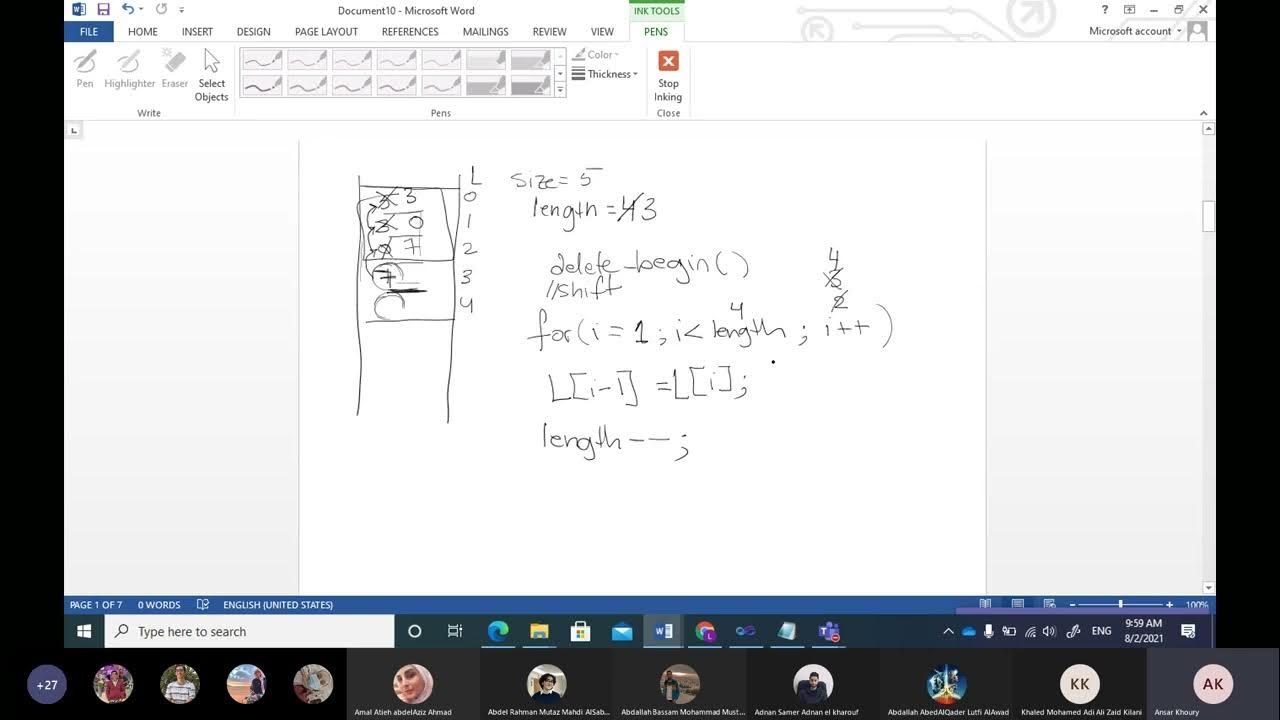 Document10 - Microsoft Word
INK TOOLS
FILE HOME INSERT DESIGN PAGE LAYOUT REFERENCES MAILINGS REVIEW VIEW PENS
Microsoft account
Pen Highlighter Eraser Select Objects
Color
Thickness
Stop Inking
Write Pens Close
L
size = 5
3 0
length = 4 3
0 1
7 2
delete-begin()
4
7 3
//shift
3
4
2
4
for(i = 1 ; i < length ; i++)
L[i-1] = L[i];
length--;
PAGE 1 OF 7 0 WORDS ENGLISH (UNITED STATES) 100%
Type here to search
ENG
9:59 AM
8/2/2021
+27
KK
AK
Amal Atieh abdelAziz Ahmad
Abdel Rahman Mutaz Mahdi AlSab...
Abdallah Bassam Mohammad Must...
Adnan Samer Adnan el kharouf
Abdallah AbedAlQader Lutfi AlAwad
Khaled Mohamed Adi Ali Zaid Kilani
Ansar Khoury